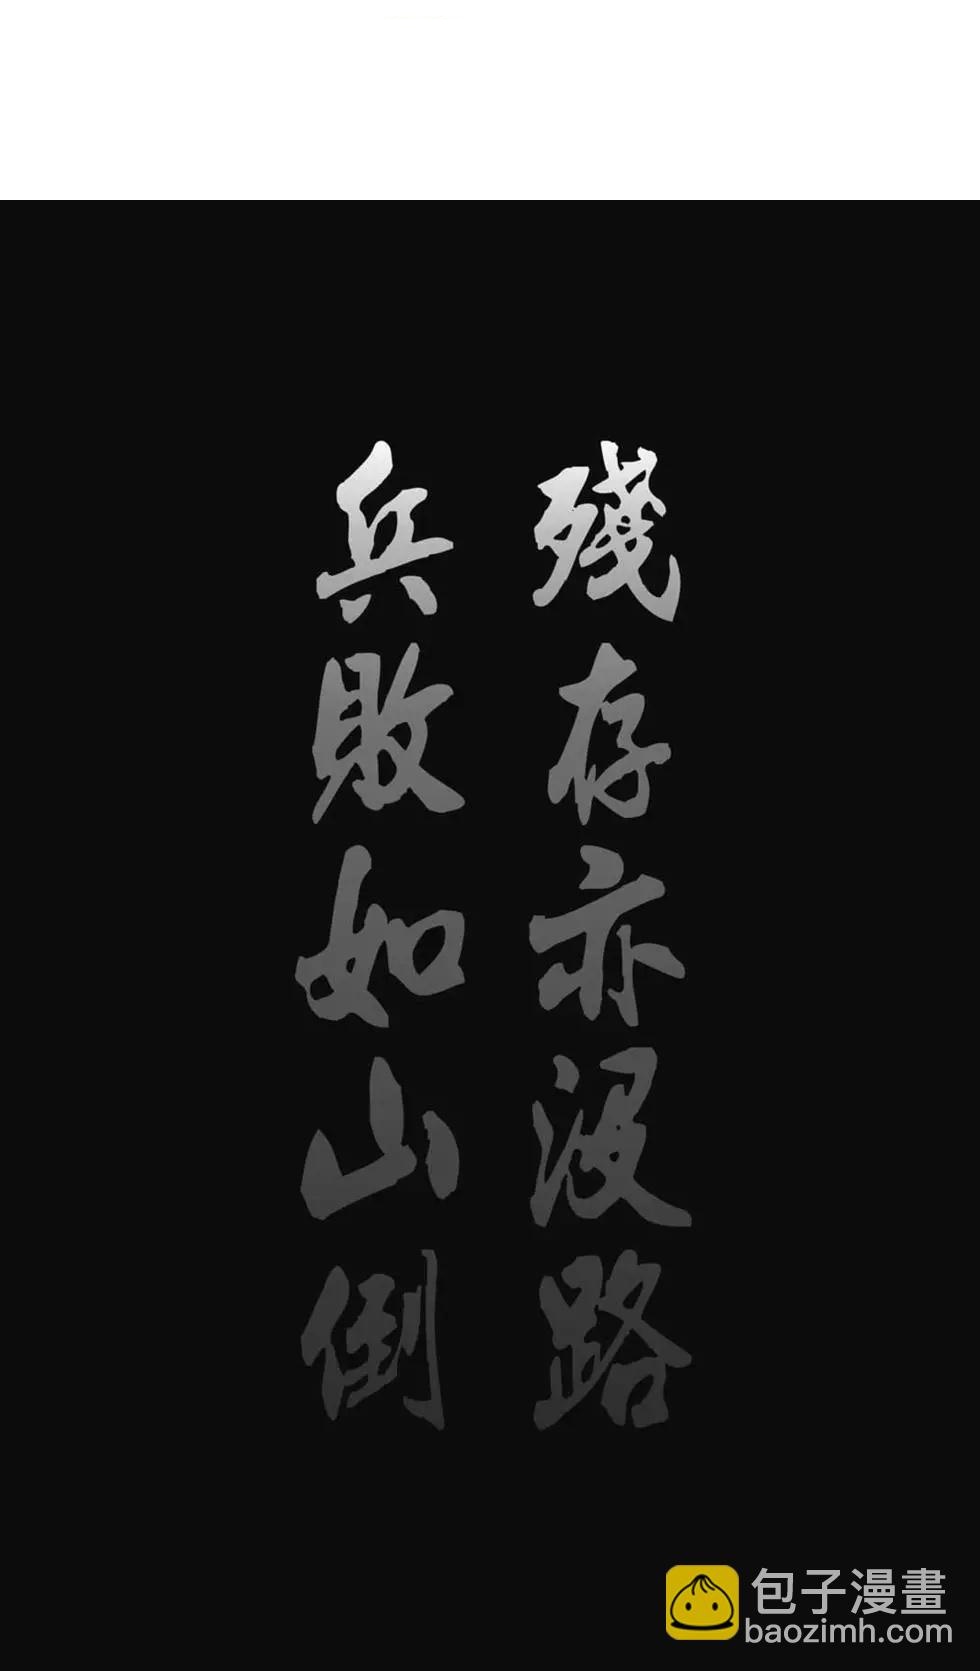 殘存亦沒路
兵敗如山倒
包子漫畫
baozimh.com